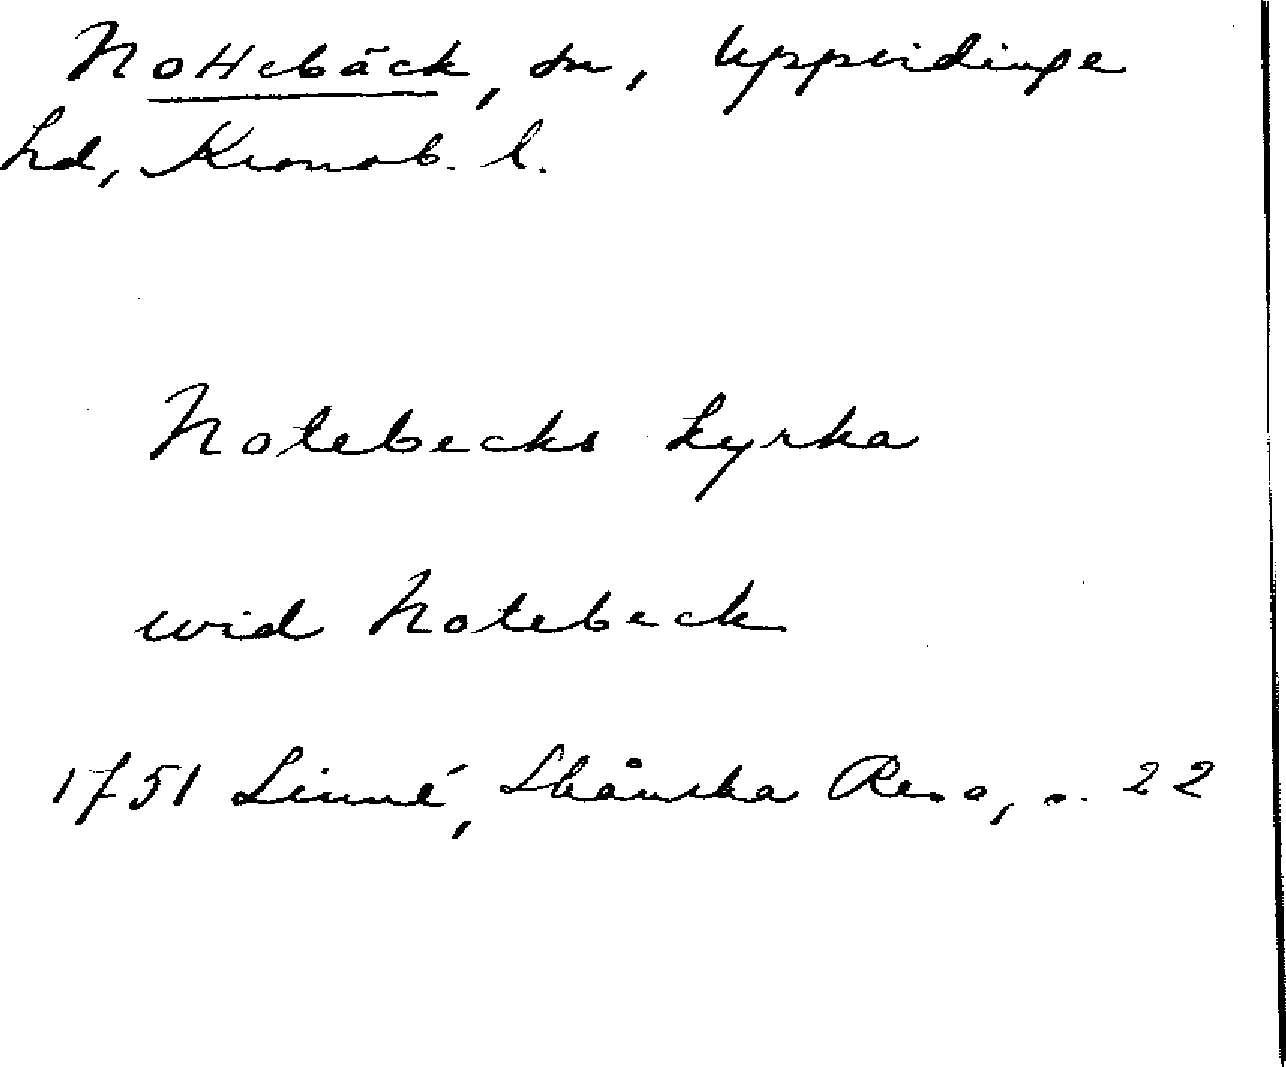 Nottebäck, sn, Uppvidinge
hd, Kronob. l.
Notebecks kyrka
wid Notebeck
1751 Linné, Skånska Resa, s. 22